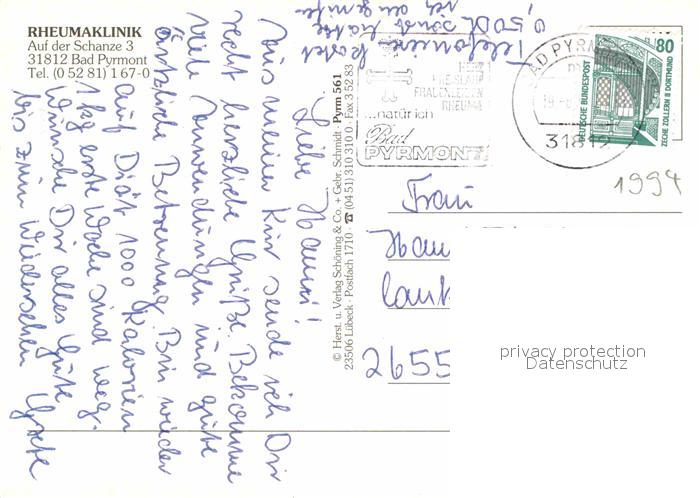 RHEUMAKLINIK
Auf der Schanze 3
31812 Bad Pyrmont
Tel. (0 52 81) 1 67-0
Liebe Hanni!
Aus meiner Kur sende ich Dir
recht herzliche Grüße. Bekomme
viele Anwendungen und gute
ärztliche Betreuung. Bin wieder
auf Diät 1000 Kalorien
1 kg erste Woche sind weg.
Wünsche Dir alles Gute
bis zum Wiedersehen Grete
Telefonieren kostet
© Herst. u. Verlag Schöning & Co. + Gebr. Schmidt · Pyrm 561
23506 Lübeck · Postfach 1710 · ☎ (04 51) 3 10 31 0 · Fax 3 52 83
HERZ
FRAUENLEIDEN
RHEUMA
...natürlich
Bad
PYRMONT
BAD PYRMONT
31812
80
DEUTSCHE BUNDESPOST
ZECHE ZOLLERN II DORTMUND
1994
Frau
Hann
Laut
2655
privacy protection
Datenschutz